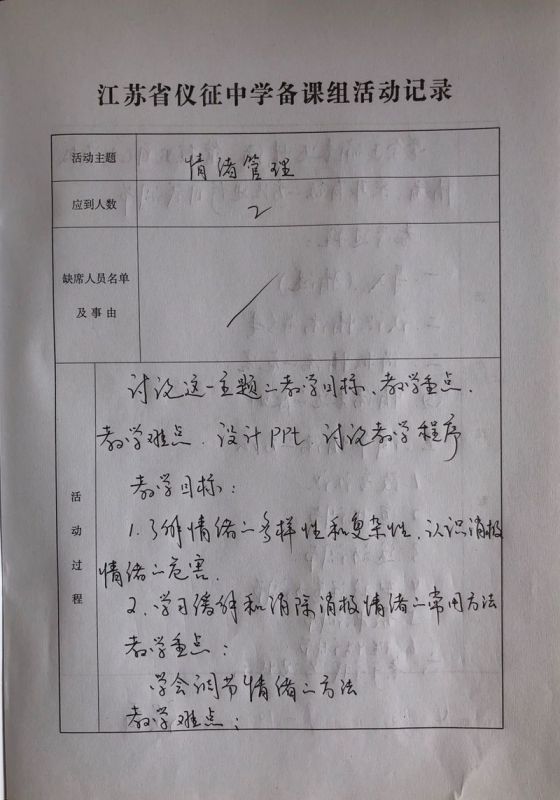 江苏省仪征中学备课组活动记录
活动主题 情绪管理
应到人数 2
缺席人员名单
及事由
活动过程
讨论这一主题之教学目标、教学重点、
教学难点、设计PPt、讨论教学程序
教学目标：
1.了解情绪之多样性和复杂性、认识消极
情绪之危害.
2.学习缓解和消除消极情绪之常用方法
教学重点：
学会调节情绪之方法
教学难点：